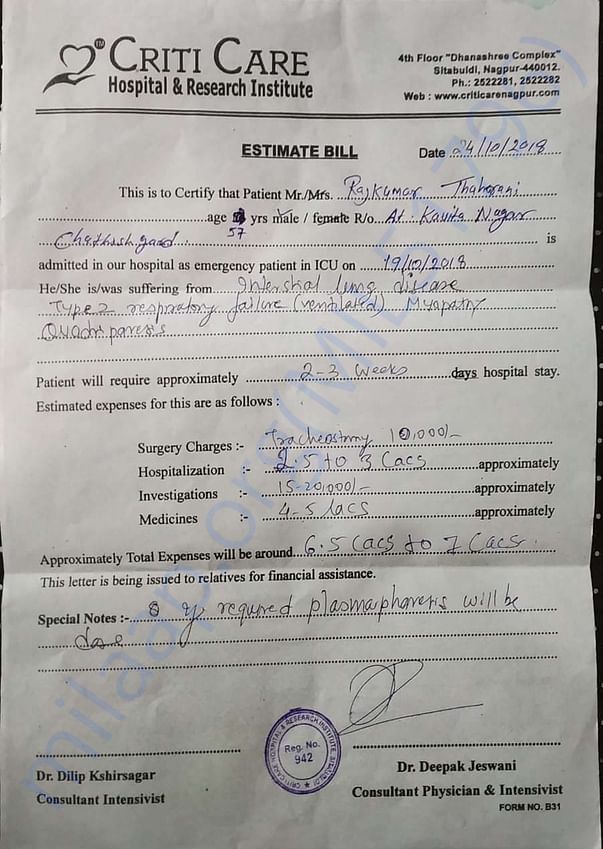 TM CRITI CARE
Hospital & Research Institute
4th Floor "Dhanashree Complex"
Sitabuldi, Nagpur-440012.
Ph.: 2522281, 2522282
Web : www.criticarenagpur.com
ESTIMATE BILL
Date 24/10/2018
This is to Certify that Patient Mr./Mrs. Rajkumar Thaharani
age 57 yrs male / female R/o. At. Kavita Nagar
Chathishgaod is
admitted in our hospital as emergency patient in ICU on 19/10/2018
He/She is/was suffering from Interstial lung disease
Type 2 respiratory failure (ventilated) Myopathy
Quadriparesis
Patient will require approximately 2-3 weeks days hospital stay.
Estimated expenses for this are as follows :
Surgery Charges :- Tracheostomy 10,000/-
Hospitalization :- 2.5 to 3 Lacs approximately
Investigations :- 15-20,000/- approximately
Medicines :- 4-5 lacs approximately
Approximately Total Expenses will be around 6.5 Lacs to 7 Lacs.
This letter is being issued to relatives for financial assistance.
Special Notes :- If required plasmapharesis will be
done
Dr. Dilip Kshirsagar
Consultant Intensivist
CRITI CARE HOSPITAL & RESEARCH INSTITUTE, SITABULDI
Reg. No.
942
Dr. Deepak Jeswani
Consultant Physician & Intensivist
FORM NO. B31